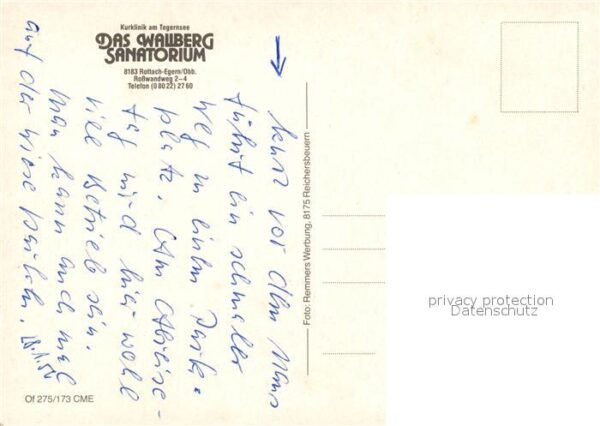 Kurklinik am Tegernsee
DAS WALLBERG
SANATORIUM
8183 Rottach-Egern/Obb.
Roßwandweg 2–4
Telefon (0 80 22) 27 60
kurz vor dem Haus
führt ein schmaler
Weg zu einem Park-
platz. Am Abreise-
tag wird hier wohl
viel Betrieb sein.
Man kann auch mal
auf der Wiese parken.
Foto: Remmers Werbung, 8175 Reichersbeuern
Of 275/173 CME
privacy protection
Datenschutz